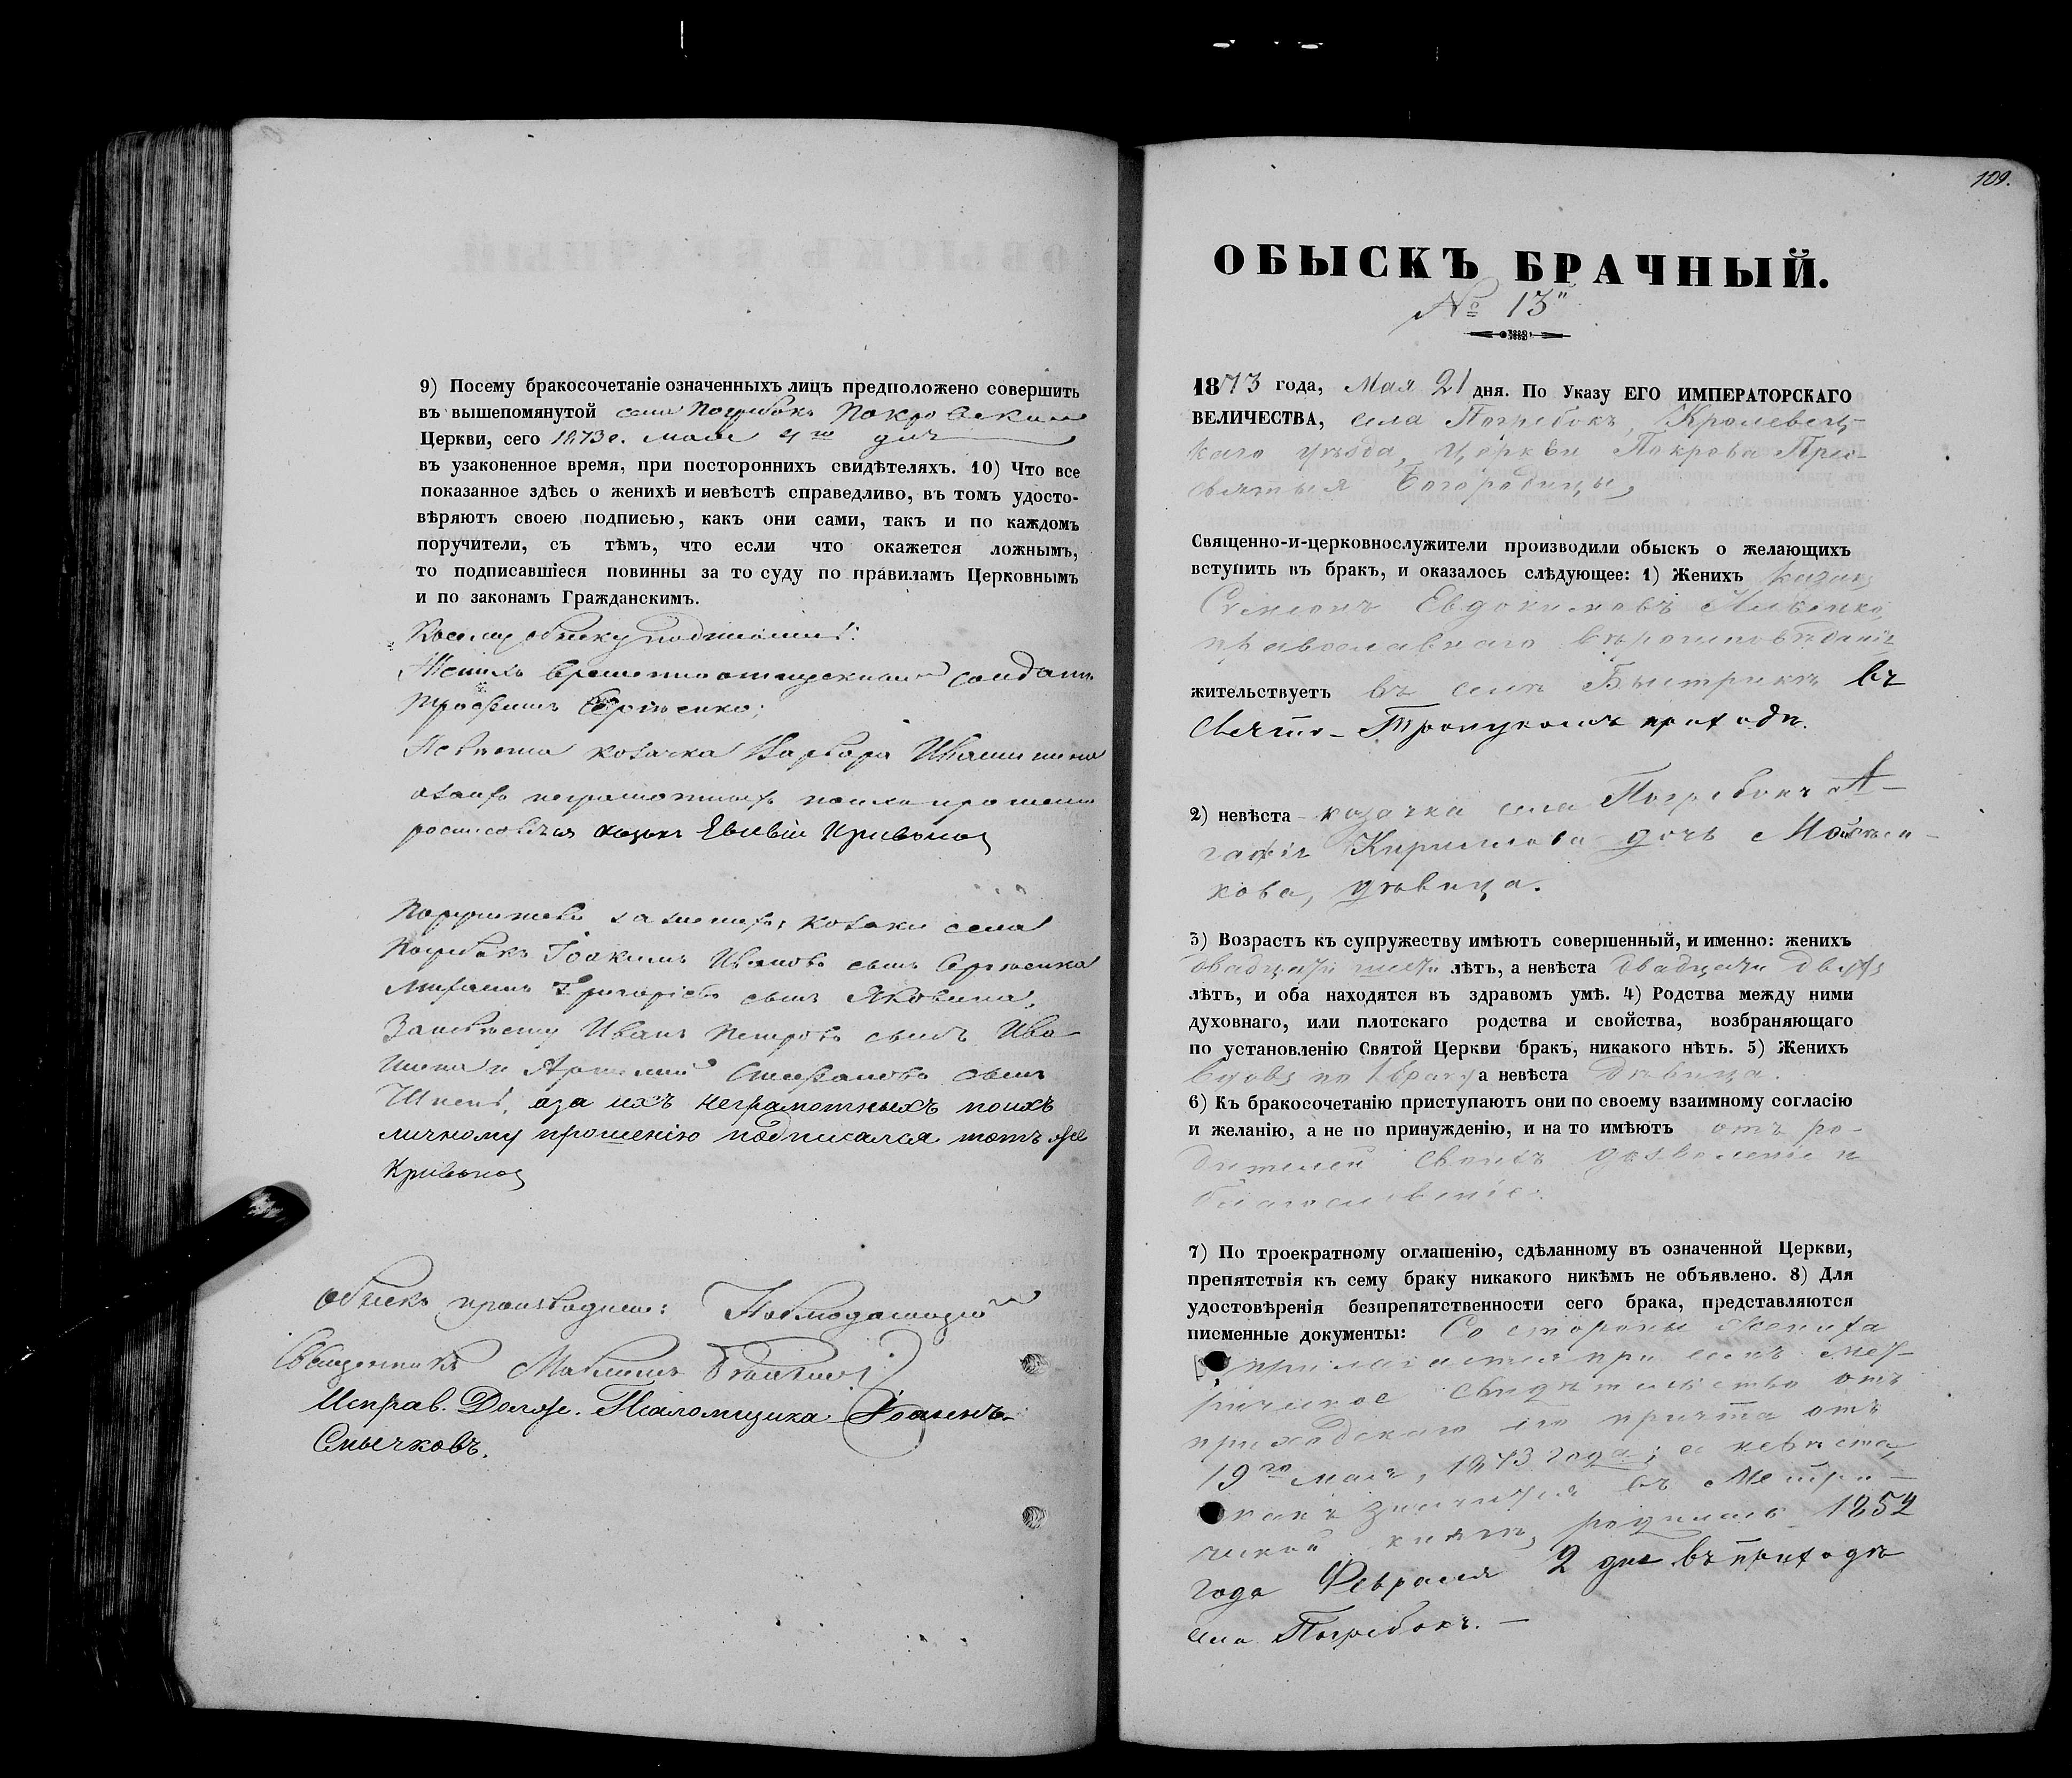 9) Посему бракосочетаніе означенныхъ лицъ предположено совершить
въ вышепомянутой села Погребокъ Покровской
Церкви, сего 1873 г. мая дня
въ узаконенное время, при постороннихъ свидѣтеляхъ. 10) Что все
показанное здѣсь о женихѣ и невѣстѣ справедливо, въ томъ удосто-
вѣряютъ своею подписью, какъ они сами, такъ и по каждомъ
поручители, съ тѣмъ, что если что окажется ложнымъ,
то подписавшіеся повинны за то суду по правиламъ Церковнымъ
и по законамъ Гражданскимъ.
Къ сему обыску подписались:
Женихъ временноотпускной солдатъ
Трофимъ Сергіенко;
Невѣста козачка Варвара Ивашинина
а за ихъ неграмотныхъ по ихъ прошенію
росписался казакъ Кривонос
Поручители за женихомъ козаки села
Погребокъ Іоакимъ Ивановъ сынъ Сергіенко
Григоріевъ сынъ Яковина,
За невѣсту Иванъ Петровъ сынъ Ива
шина и Стефановъ сынъ
а за ихъ неграмотныхъ по ихъ
личному прошенію подписался тотъ же
Кривонос
Обыскъ производили: Наблюдающій
Священникъ
Исправ. Долж. Псаломщика Іоаннъ
Смычковъ.
109.
ОБЫСКЪ БРАЧНЫЙ.
№ 13
1873 года, Мая 21 дня. По Указу ЕГО ИМПЕРАТОРСКАГО
ВЕЛИЧЕСТВА, села Погребокъ, Кролевец-
каго уѣзда, Церкви Покрова Пре-
святыя Богородицы,
Священно-и-церковнослужители производили обыскъ о желающихъ
вступить въ бракъ, и оказалось слѣдующее: 1) Женихъ казакъ
Симеонъ Евдокимовъ
православнаго вѣроисповѣданія
жительствуетъ въ селѣ Быстрикѣ въ
Свято-Троицкомъ приходѣ.
2) невѣста - козачка села Погребокъ А-
гафія Кириллова дочь
кова, дѣвица.
3) Возрастъ къ супружеству имѣютъ совершенный, и именно: женихъ
двадцати шести лѣтъ, а невѣста двадцати двухъ
лѣтъ, и оба находятся въ здравомъ умѣ. 4) Родства между ними
духовнаго, или плотскаго родства и свойства, возбраняющаго
по установленію Святой Церкви бракъ, никакого нѣтъ. 5) Женихъ
вдовъ по 1 бракѣ а невѣста дѣвица.
6) Къ бракосочетанію приступаютъ они по своему взаимному согласію
и желанію, а не по принужденію, и на то имѣютъ отъ ро-
дителей своихъ дозволеніе и
благословеніе.
7) По троекратному оглашенію, сдѣланному въ означенной Церкви,
препятствія къ сему браку никакого никѣмъ не объявлено. 8) Для
удостовѣренія безпрепятственности сего брака, представляются
писменные документы: Со стороны жениха
прилагается при семъ мет-
рическое свидѣтельство отъ
приходскаго его причта отъ
19го мая, 1873 года; а невѣста,
какъ значится въ Метри-
ческой книгѣ, родилась 1852
года Февраля 2 дня въ приходѣ
села Погребокъ. —